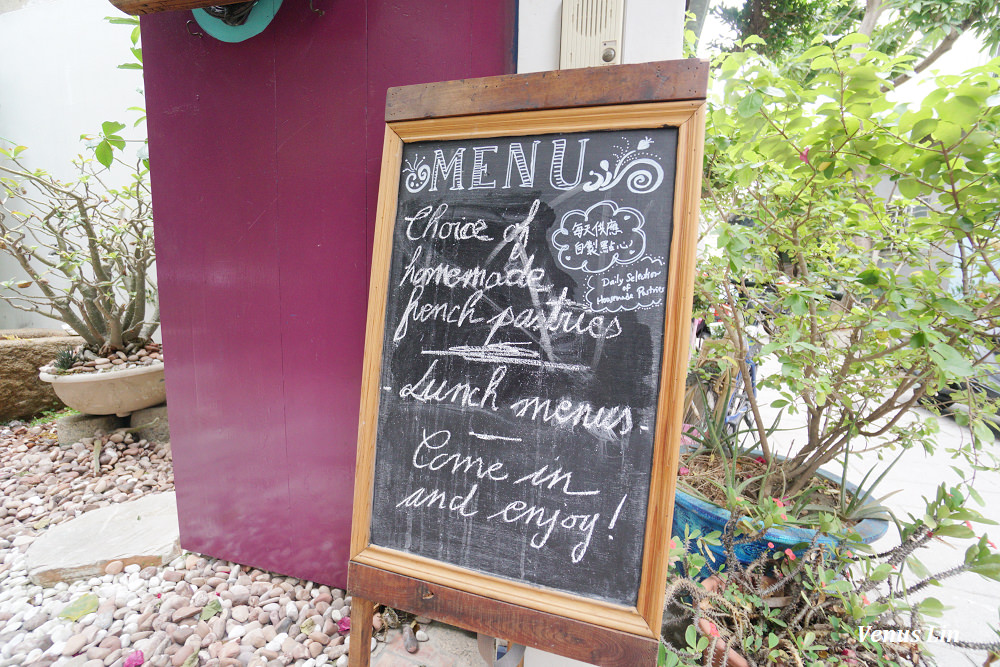 MENU
Choice of
homemade
french pastries
每天供應
自製點心!
Daily Selection
of
Homemade Pastries
- Lunch menus -
Come in
and enjoy!
Venus Lin